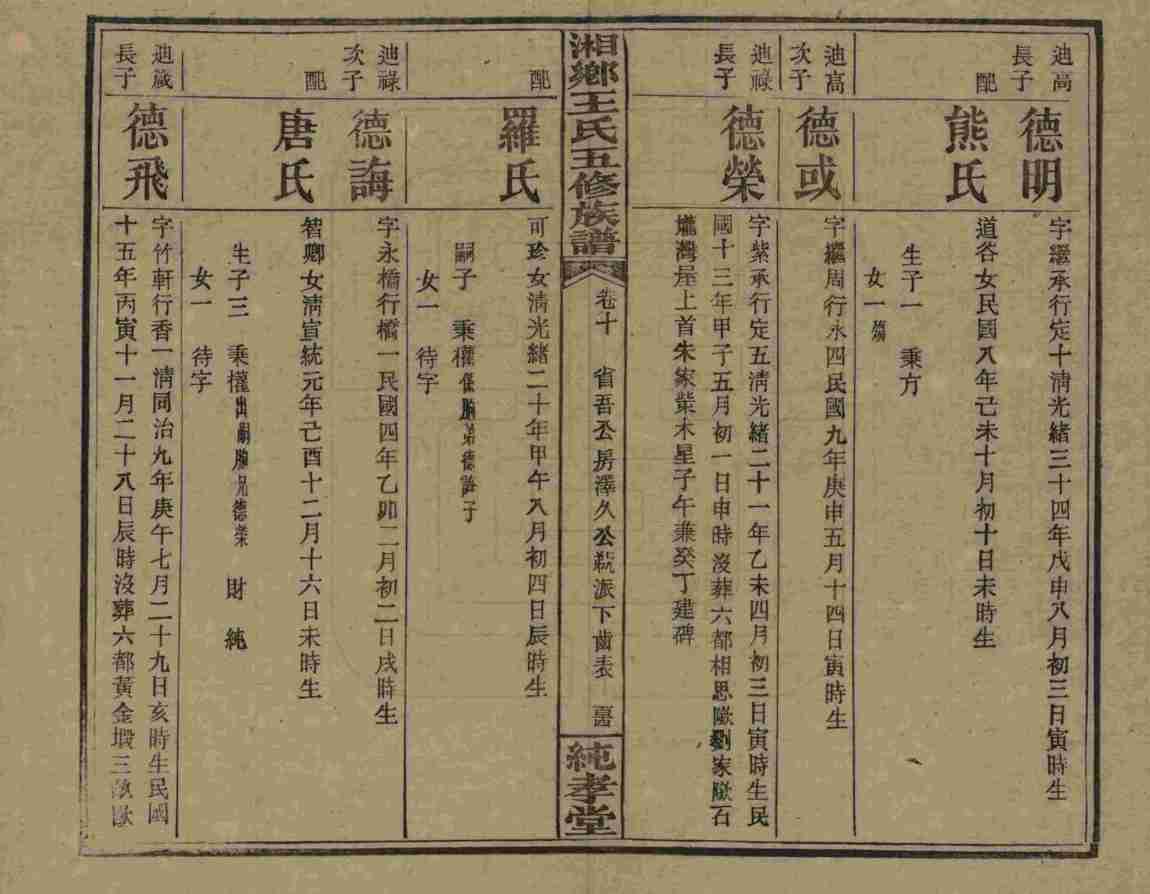 迪高長子
德明
字繼承行定十淸光緒三十四年戊申八月初三日寅時生
配
熊氏
道谷女民國八年己未十月初十日未時生
生子一 乘方
女一
迪高次子
德或
字繼周行永四民國九年庚申五月十四日寅時生
迪祿長子
德榮
字紫承行定五淸光緒二十一年乙未四月初三日寅時生民
國十三年甲子五月初一日申時沒葬六都相思歐劉家歐石
壠灣屋上首朱家業木星子午兼癸丁建碑
湘鄉王氏五修族譜
卷十 省吾公房澤久公 派下齒表
純孝堂
配
羅氏
可珍女淸光緒二十年甲午八月初四日辰時生
嗣子 乘權係胞弟德誨子
女一 待字
迪祿次子
德誨
字永橋行橋一民國四年乙卯二月初二日戌時生
配
唐氏
智卿女淸宣統元年己酉十二月十六日未時生
生子三 乘權出嗣胞兄德榮 財 純
女一 待字
迪箴長子
德飛
字竹軒行香一淸同治九年庚午七月二十九日亥時生民國
十五年丙寅十一月二十八日辰時沒葬六都黃金塅三 歐